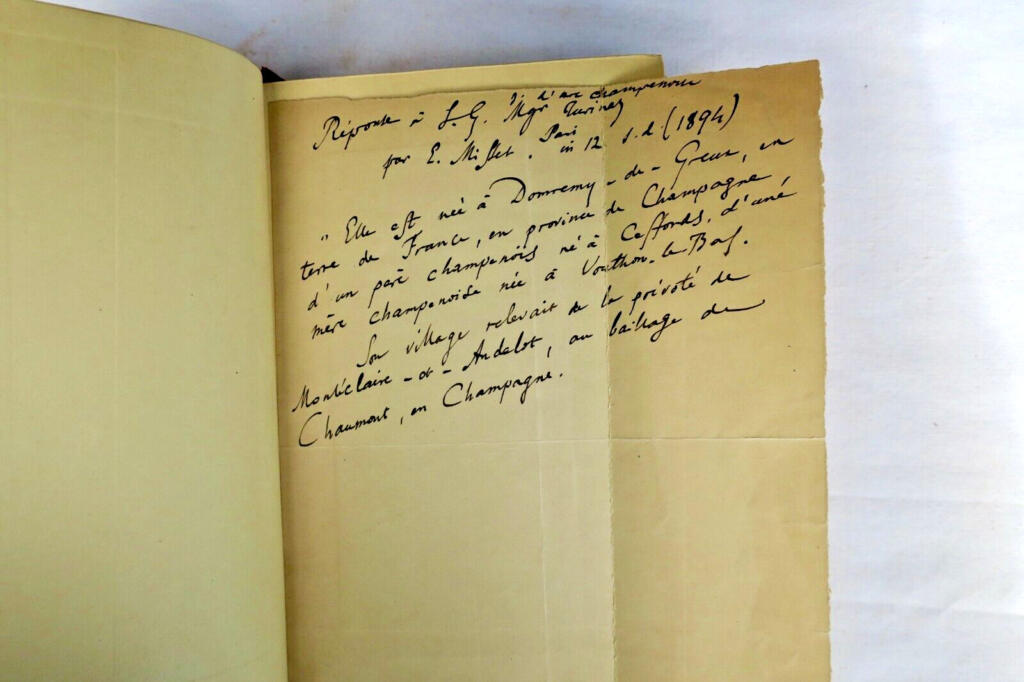 J. d'arc champenoise
Réponse à S. G. Mgr Turinaz
par E. Misset. Paris
in 12 s.d. (1894)
" Elle est née à Domremy-de-Greux, en
terre de France, en province de Champagne,
d'un père champenois né à Ceffonds, d'une
mère champenoise née à Vouthon-le-Bas.
Son village relevait de la prévôté de
Montéclaire-et-Andelot, au bailliage de
Chaumont, en Champagne.